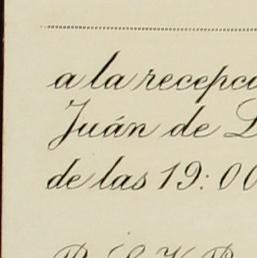 a la recepci
Juán de L
de las 19:00